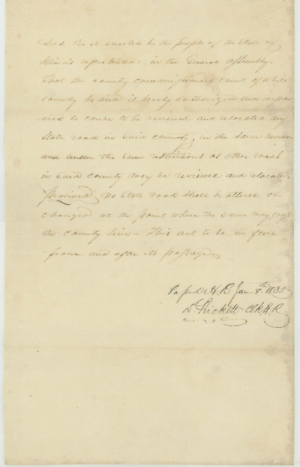 Sec 1 Be it enacted by the people of the State of
Illinois represented in the General Assembly.
That the county commissioners court of
county be and is hereby authorized and empow
ered to cause to be reviewed and relocated any
State road in said county, in the same manner
and under the same restrictions as other roads
in said county may be reviewed and relocated
Provided, No State road shall be altered or
changed at the point where the same may cross
the county line. This act to be in force
from and after its passage,
Passed H.R. Jan 8th 1835
D. Prickett Clk H.R